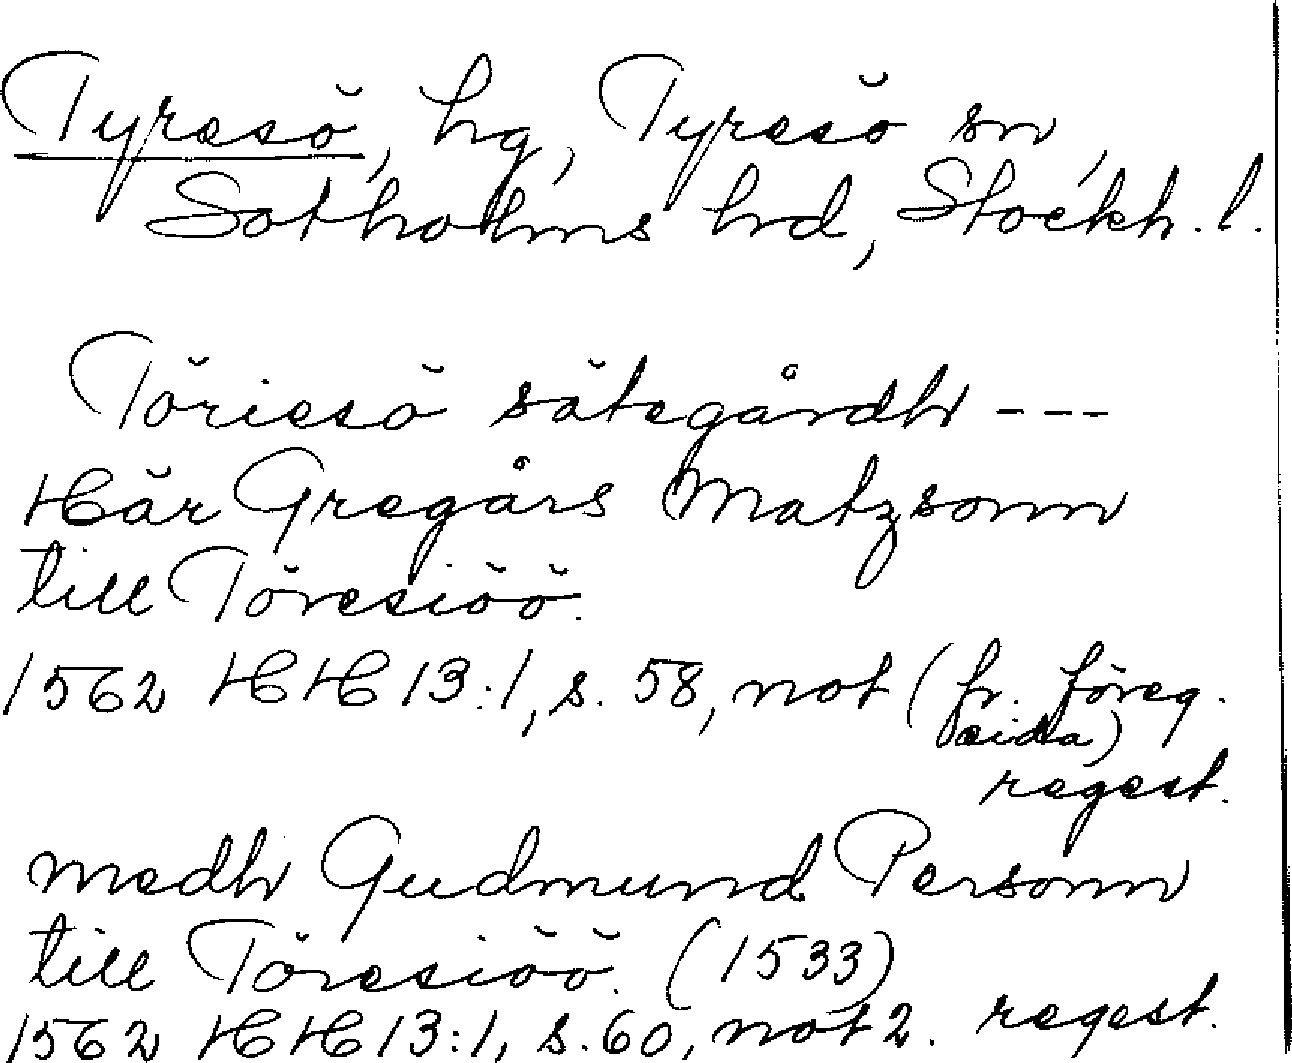 Tyresö, hg, Tyresö sn,
Sotholms hrd, Stockh. l.
Töriesö sätegårdh ---
Här Gregårs Matzsonn
till Töresiöö.
1562 HH 13:1, s. 58, not (fr. föreg.
sida)
regest.
medh Gudmund Personn
till Töresiöö. (1533)
1562 HH 13:1, s. 60, not 2. regest.